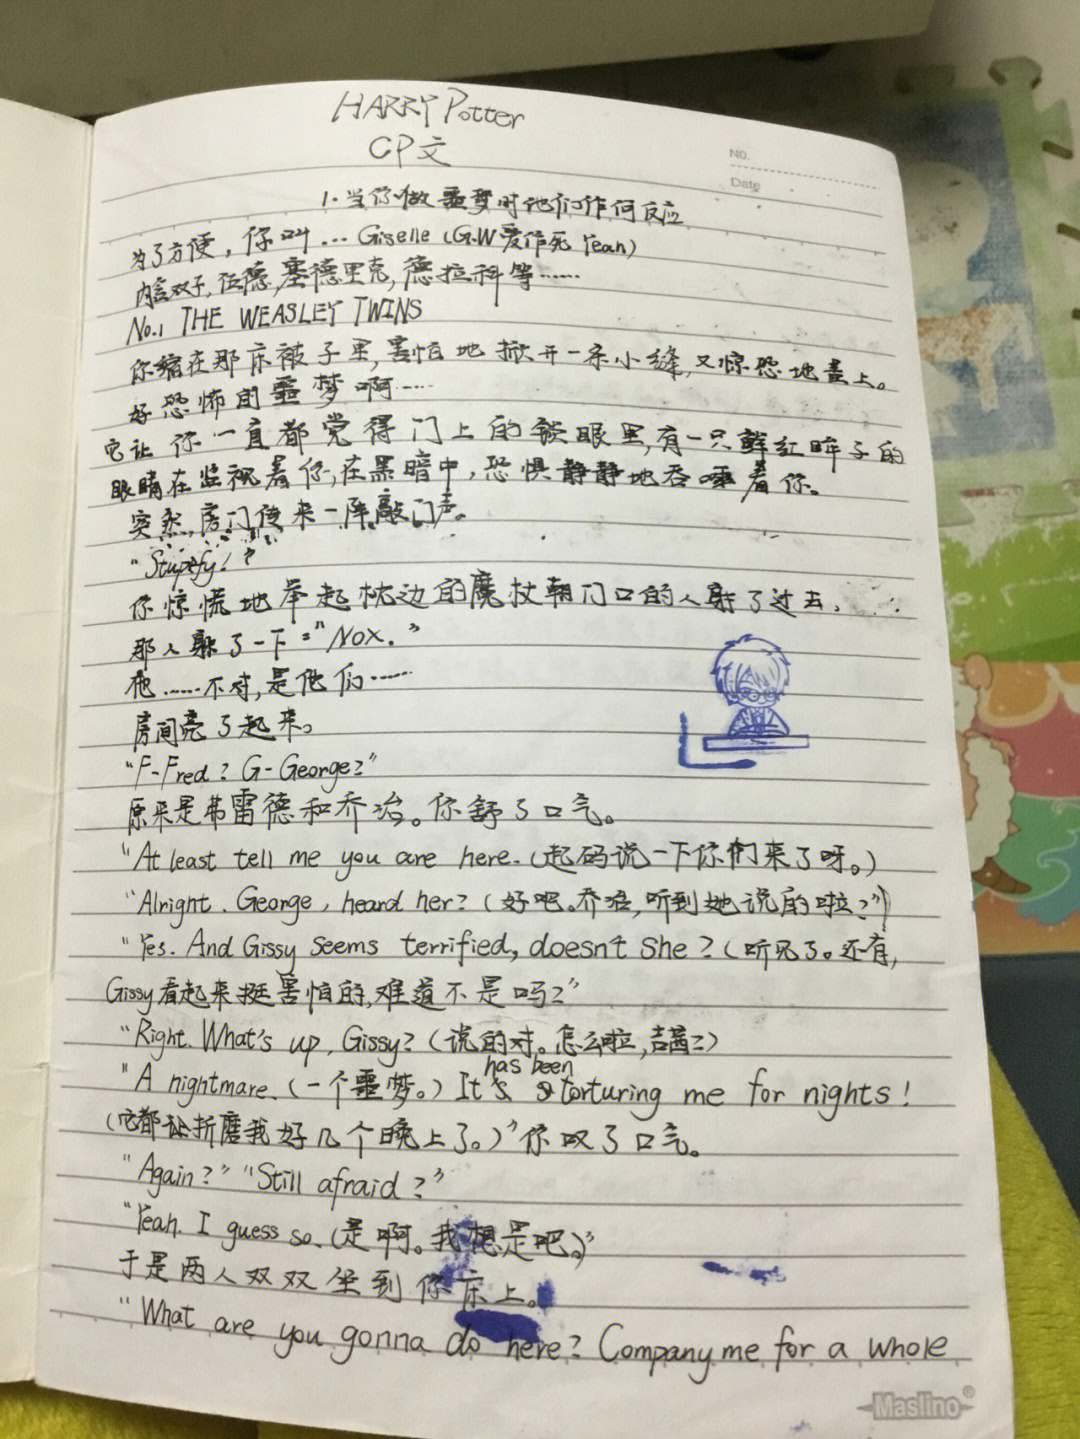 HARRY Potter
CP文
No.
Date
1.当你做噩梦时他们作何反应
为了方便,你叫…Giselle(G.W爱作死Yeah)
内含双子,伍德,塞德里克,德拉科等……
No.1 THE WEASLEY TWINS
你缩在那床被子里,害怕地掀开一条小缝,又惊恐地盖上。
好恐怖的噩梦啊……
它让你一直都觉得门上的锁眼里,有一只鲜红眸子的
眼睛在监视着你,在黑暗中,恐惧静静地吞噬着你。
突然,房门传来一阵敲门声。
“Stupefy!”
你惊慌地举起枕边的魔杖朝门口的人射了过去,
那人躲了一下:“Nox.”
他……不对,是他们……
房间亮了起来。
“F-Fred? G-George?”
原来是弗雷德和乔治。你舒了口气。
“At least tell me you are here.(起码说一下你们来了呀。)
“Alright. George, heard her?(好吧。乔治,听到她说的啦?”)
“Yes. And Gissy seems terrified, doesn't she?(听见了。还有,
Gissy看起来挺害怕的,难道不是吗?”
“Right. What's up, Gissy?(说的对。怎么啦,吉茜?)
has been
“A nightmare.(一个噩梦。)It torturing me for nights!
(它都折磨我好几个晚上了。)”你叹了口气。
“Again?”“Still afraid?”
“Yeah. I guess so.(是啊。我想是吧。)”
于是两人双双坐到你床上。
“What are you gonna do here? Company me for a whole
Maslino®